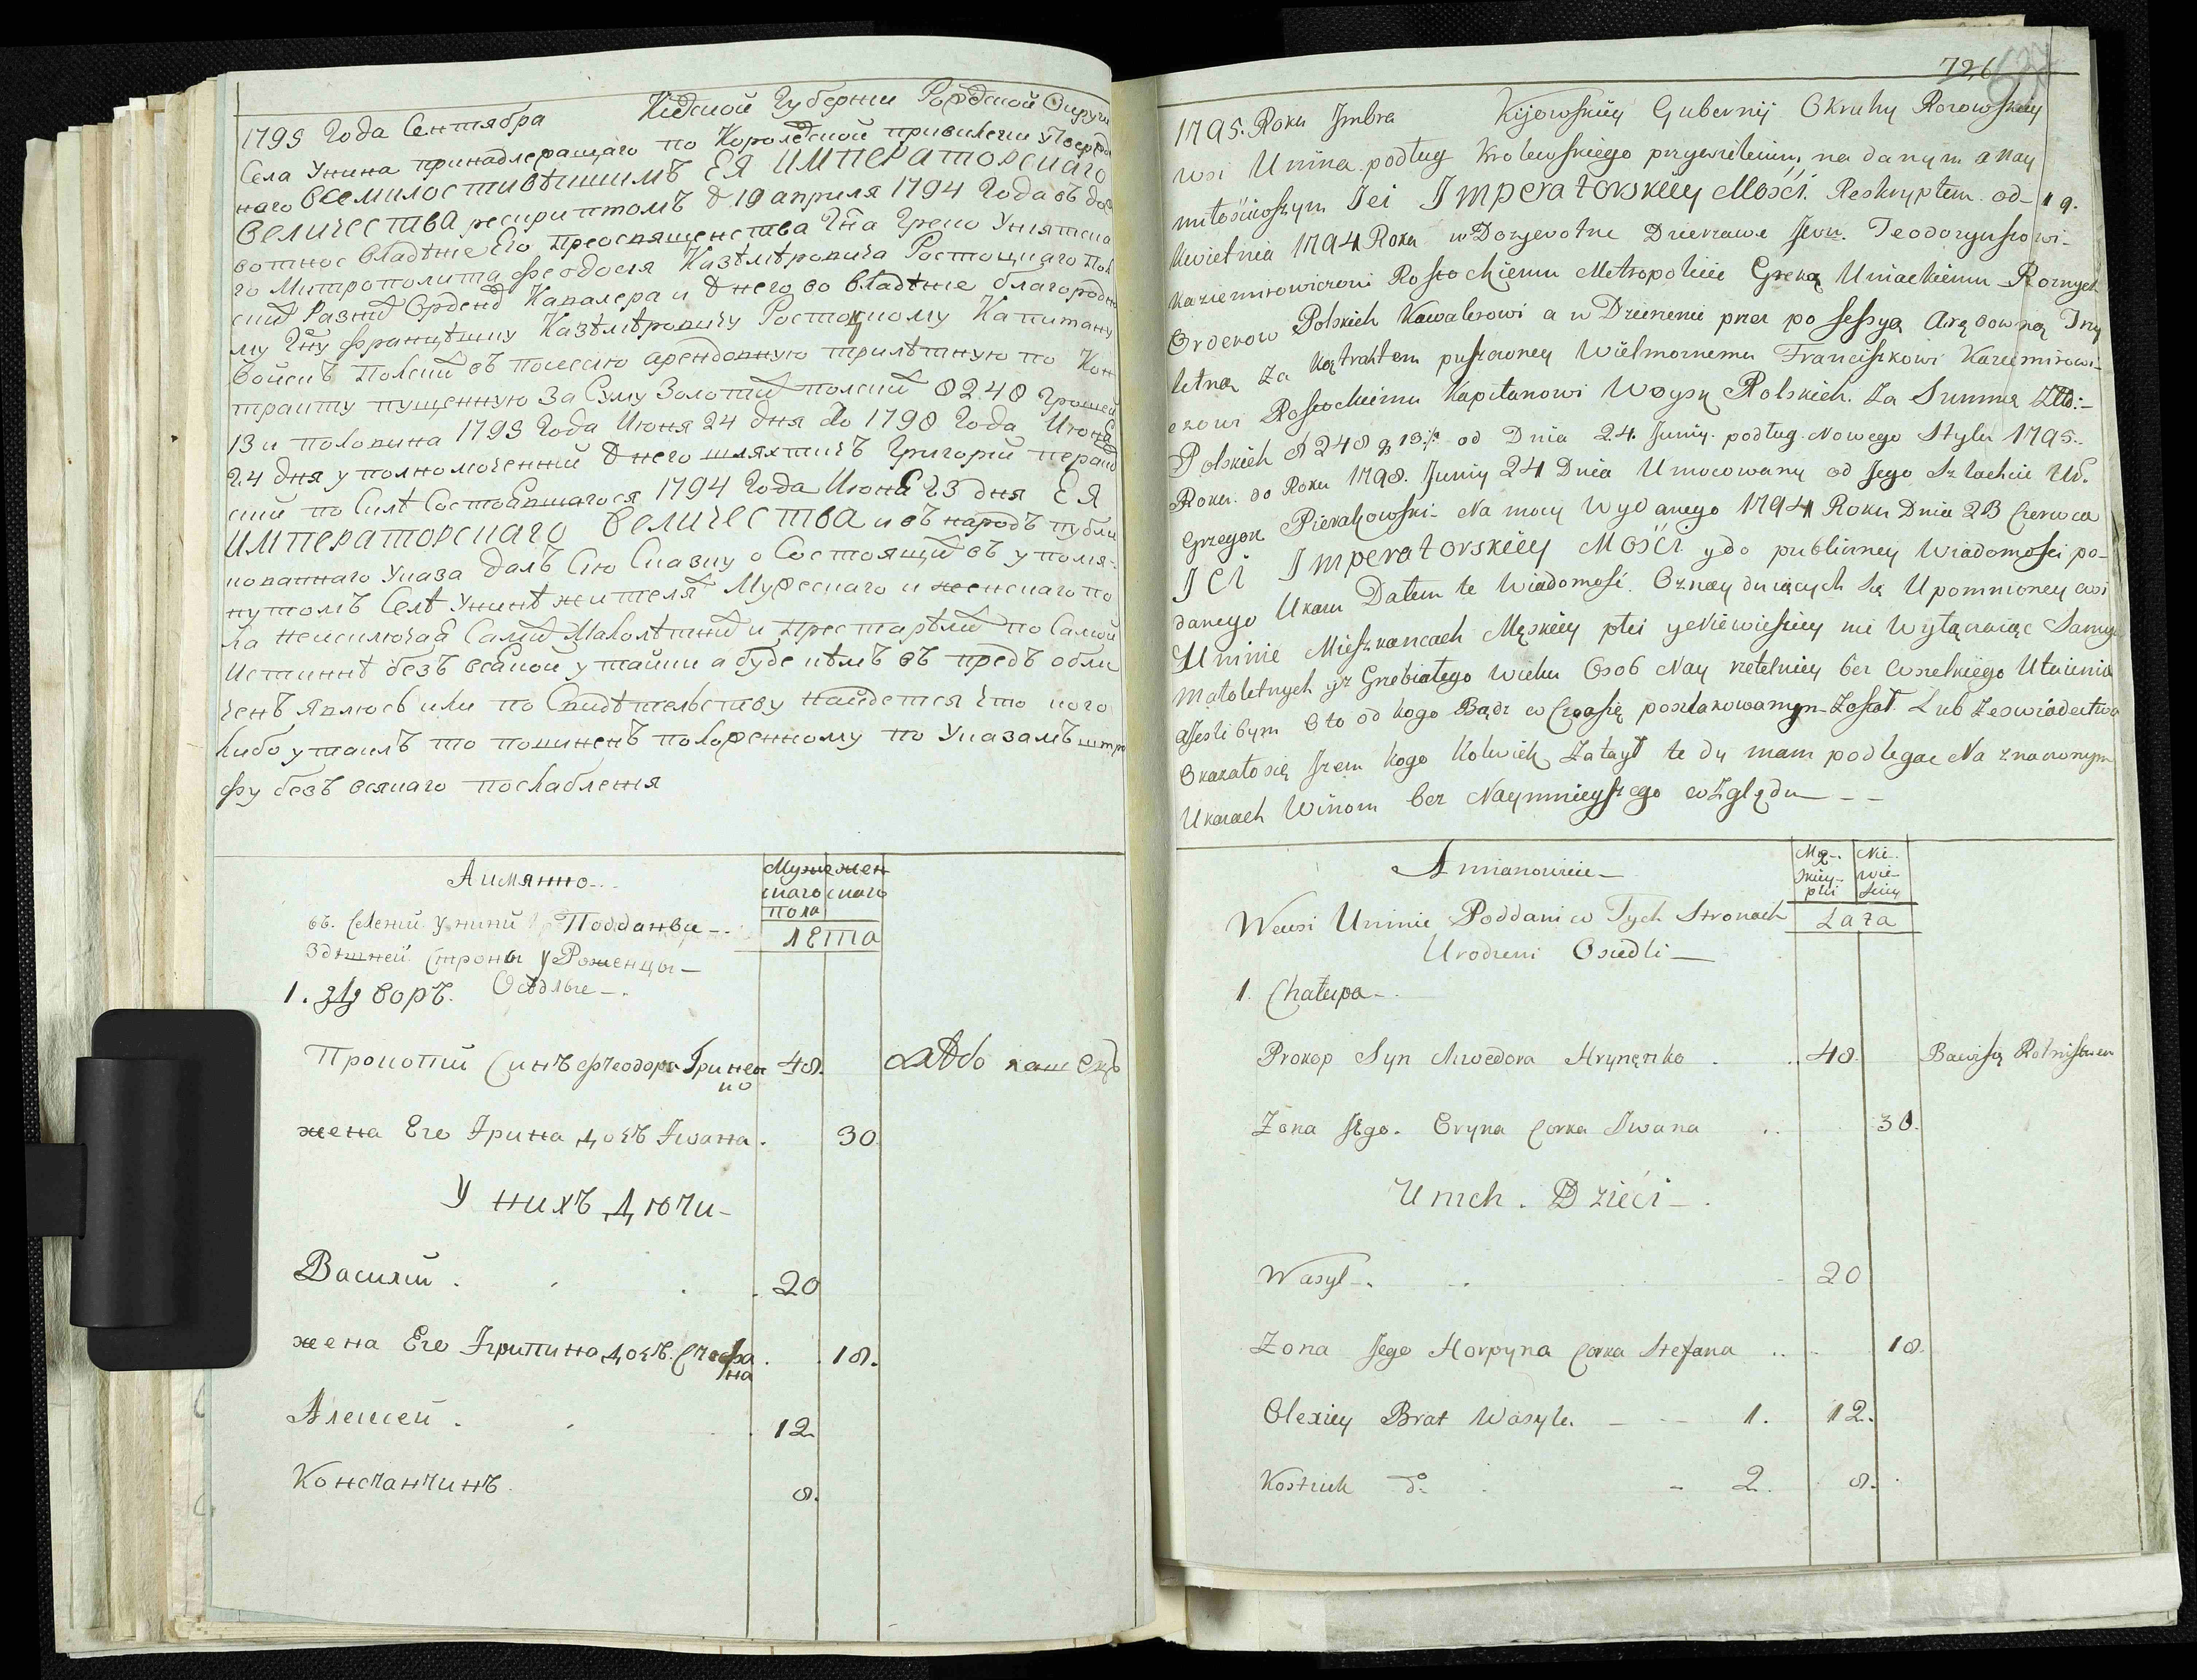 1795 Года Сентября Киевской Губернии Округи
Села Унина принадлежащаго по Королевской привилеги
наго всемилостивѣишимъ ЕЯ ИМПЕРАТОРСКАГО
ВЕЛИЧЕСТВА рескриптомъ 19 априля 1794 Года въ
вотное владѣние Его преосвященства Греко Униятска
го Митрополита Феодосия Ростоцкаго
Разних Орденов Кавалера и во владѣние благородно
му Францѣшку Ростоцкому Капитану
Войскъ Полских въ посесию арендовную трилѣтную по Кон
тракту пущенную За Суму Золотих полских 8248 Грошей
13 и половина 1795 Года Июня 24 дня до 1798 Года Июня
24 дня уполномоченний шляхтичъ Григорий
ский по Силѣ Состоявшагося 1794 Года Июня 23 дня ЕЯ
ИМПЕРАТОРСКАГО ВЕЛИЧЕСТВА и въ народъ публи
кованнаго Указа далъ Сию Сказку о Состоящих въ упомя-
нутомъ Селѣ Унинѣ жителях Мужескаго и женскаго по
ла неисключая Самих Малолѣтних и престарѣлих по Самой
Истиннѣ безъ всякой утайки а буде кѣмъ въ предъ обли
ченъ явлюсь или по Свидѣтельству найдется что кого
либо утаилъ то повиненъ положенному по Указамъ штра
фу безъ всякаго послабления
А имянно
Мужескаго
женскаго
пола
лета
въ Селении Унини Подданые
Здѣшней Строны Уроженцы
Осѣдлые
1. Дворъ.
Прокопий Синъ Феодора Гринен
ко 48.
жена Его Ирина дочь Ивана. 30.
У нихъ Дючи
Василий . 20
жена Его Агрипина дочь Стефа
на 18.
Алексей . 12.
Константинъ 8.
726
1795. Roku Kijowskiey Gubernij Okruhy
wsi Unina podług Krolewskiego przywileium, na danym a Nay
miłościwszym Jei Imperatorskiey Mości Reskryptem od 19.
Kwietnia 1794 Roku w Dożywotne Dzierżawe Teodozyuszowi
Kazimirowiczowi Rostockiemu Metropolicie Greko Uniackiemu Roznych
Orderow Polskich Kawalerowi a w Dzierżenie przez possessyą Arędowną Trzy
letną za Kątraktem puszczoney Wielmożnemu Franciszkowi Kazimirowi
czowi Rostockiemu Kapitanowi Woysk Polskich. Za Summę
Polskich 8248 g 13½ od Dnia 24. Junij podług Nowego Stylu 1795.
Roku do Roku 1798. Junij 24 Dnia Umocowany od Jego Szlachcic
Grzegorz Na mocy Wydanego 1794 Roku Dnia 23 Czerwca
JEI Imperatorskiey Mości y do publiczney Wiadomości po-
danego Ukazu Datem te Wiadomość. O znayduiących się U pomnioney wsi
Uninie Mieszkancach Męskiey płci y Niewieściey nie Wyłączaiąc Samych
Małoletnych y Grzebiatego wieku Osob Nay rzetelniey bez wszelkiego Utaienia
a Jesli bym o to od kogo Bądz w Czasie poszlakowanym Został Lub Ze świadectwa
Okazało się żem kogo kolwiek Zataył te dy mam podlegać Na znaczonym
Ukazach Winom bez Naymnieyszego wzlędu
A mianowicie
Mę-
skiey
płci
Nie-
wie-
sciey
Lata
We wsi Uninie Poddani w Tych Stronach
Urodzeni Osiedli
1. Chałupa
Prokop Syn Chwedora Hrynęnko 48. Bawi się Rolnistwem
Zona Jego Oryna Corka Iwana 30.
U nich Dzieci
Wasyl 20
Zona Jego Horpyna Corka Stefana 18.
Olexiey Brat Wasyla 1. 12.
Kostiuk do 2. 8.